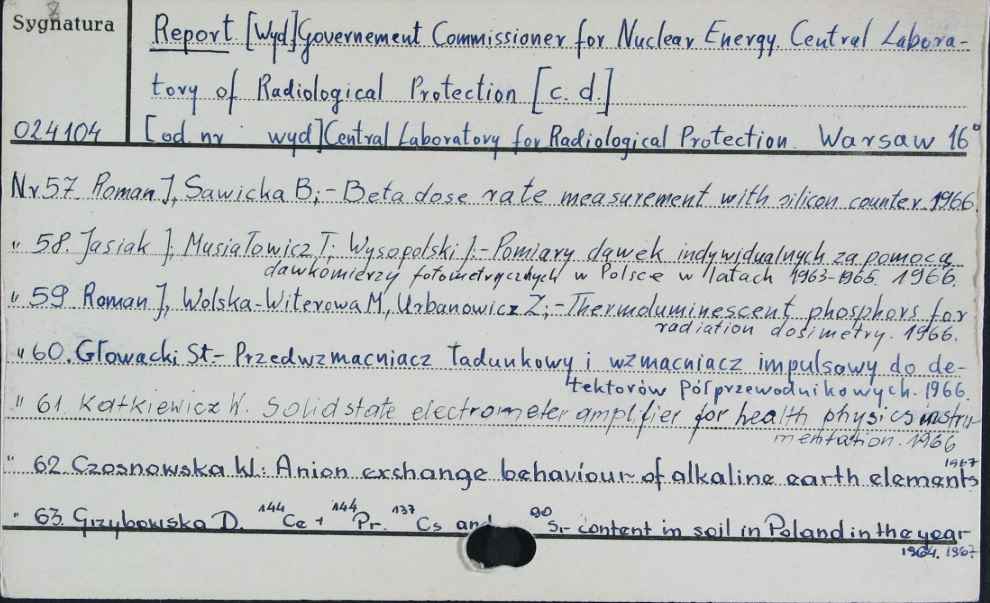 Sygnatura
Report. [Wyd] Governement Commissioner for Nuclear Energy. Central Labora-
tory of Radiological Protection [c.d.]
024104
[od nr wyd] Central Laboratory for Radiological Protection. Warsaw 16°
Nr 57 Roman J, Sawicka B; - Beta dose rate measurement with silicon counter. 1966.
" 58. Jasiak J; Musiałowicz T; Wysopolski J. - Pomiary dawek indywidualnych za pomocą
dawkomierzy fotometrycznych w Polsce w latach 1963-1965. 1966.
" 59 Roman J, Wolska-Witerowa M, Urbanowicz Z; - Thermoduminescent phosphors for
radiation dosimetry. 1966.
" 60. Głowacki St - Przedwzmacniacz ładunkowy i wzmacniacz impulsowy do de-
tektorów półprzewodnikowych. 1966.
" 61. Katkiewicz W. Solid state electrometer amplifier for health physics instru-
mentation. 1966
" 62. Czosnowska W.: Anion exchange behaviour of alkaline earth elements
1967
" 63. Grzybowska D. ¹⁴⁴Ce + ¹⁴⁴Pr. ¹³⁷Cs and ⁹⁰Sr content in soil in Poland in the year
1964. 1967